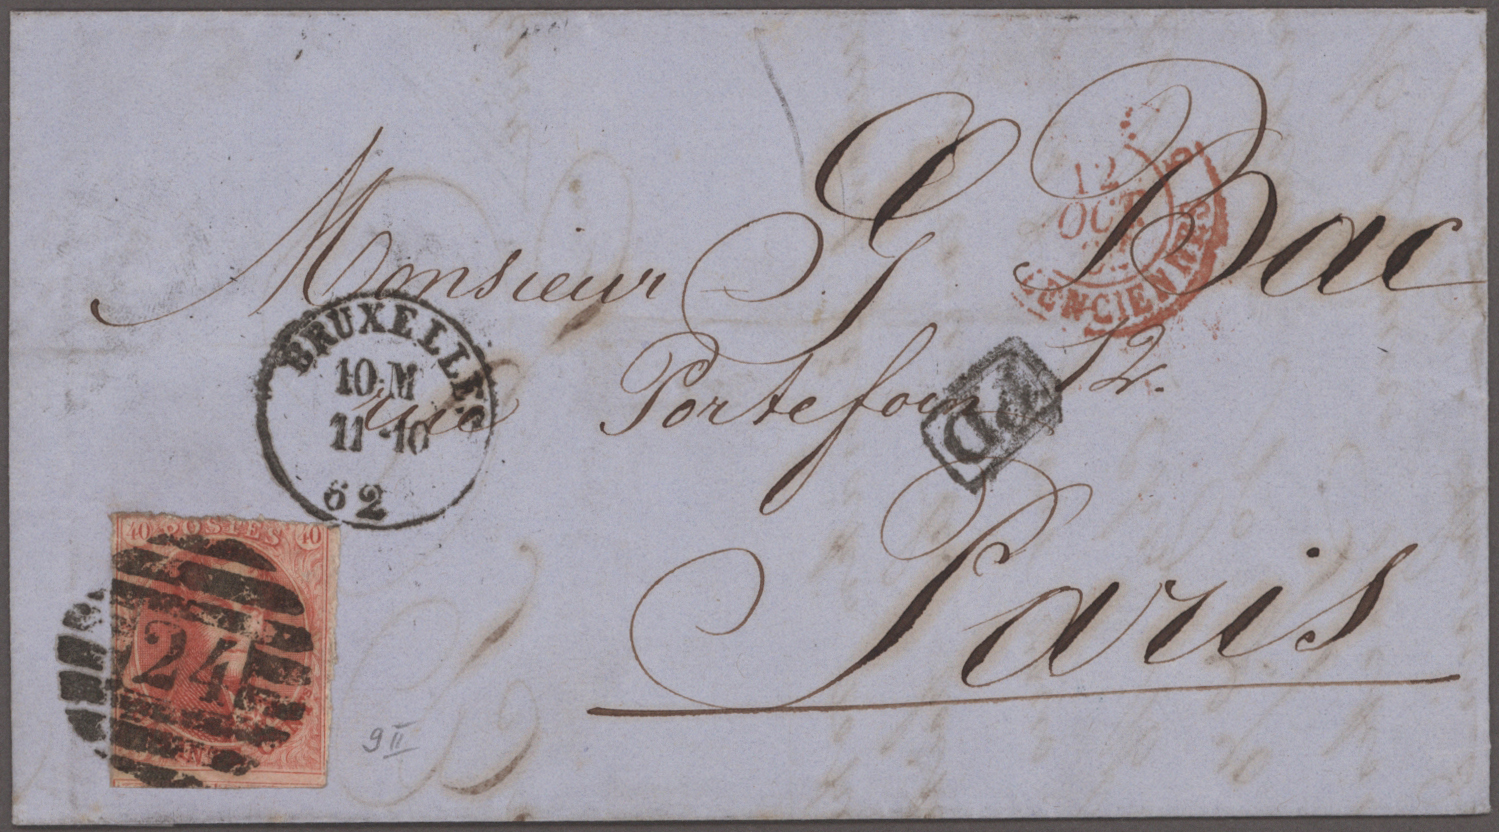 Monsieur G Bac
rue Portefoin 12.
Paris
BRUXELLES
10·M
11·10
62
12
OCT.
PD
40 POSTES 40
24
9 II